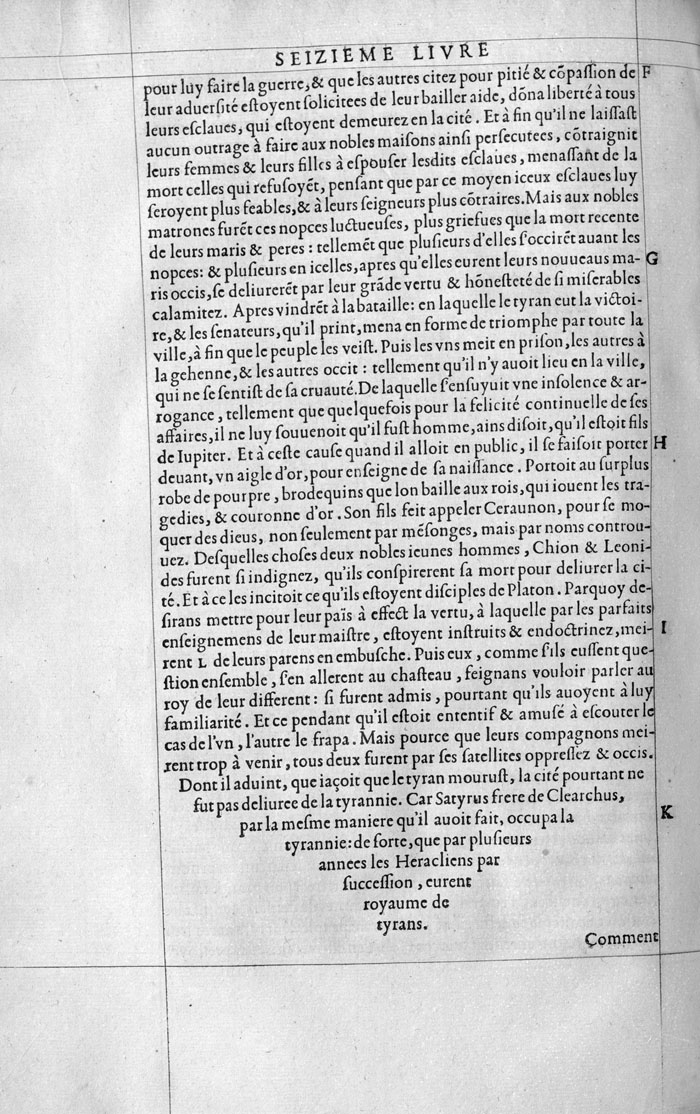 SEIZIEME LIVRE
pour luy faire la guerre, & que les autres citez pour pitié & cōpaſſion de F
leur aduerſité eſtoyent ſolicitees de leur bailler aide, dōna liberté à tous
leurs eſclaues, qui eſtoyent demeurez en la cité. Et à fin qu'il ne laiſſaſt
aucun outrage à faire aux nobles maiſons ainſi perſecutees, cōtraignit
leurs femmes & leurs filles à eſpouſer leſdits eſclaues, menaſſant de la
mort celles qui refuſoyēt, penſant que par ce moyen iceux eſclaues luy
ſeroyent plus feables, & à leurs ſeigneurs plus cōtraires. Mais aux nobles
matrones furēt ces nopces luctueuſes, plus griefues que la mort recente
de leurs maris & peres : tellemēt que pluſieurs d'elles ſ'occirēt auant les
nopces: & pluſieurs en icelles, apres qu'elles eurent leurs nouueaus ma- G
ris occis, ſe deliurerēt par leur grāde vertu & hōneſteté de ſi miſerables
calamitez. Apres vindrēt à la bataille: en laquelle le tyran eut la victoi-
re, & les ſenateurs, qu'il print, mena en forme de triomphe par toute la
ville, à fin que le peuple les veiſt. Puis les vns meit en priſon, les autres à
la gehenne, & les autres occit : tellement qu'il n'y auoit lieu en la ville,
qui ne ſe ſentiſt de ſa cruauté. De laquelle ſ'enſuyuit vne inſolence & ar-
rogance, tellement que quelquefois pour la felicité continuelle de ſes
affaires, il ne luy ſouuenoit qu'il fuſt homme, ains diſoit, qu'il eſtoit fils
de Iupiter. Et à ceſte cauſe quand il alloit en public, il ſe faiſoit porter H
deuant, vn aigle d'or, pour enſeigne de ſa naiſſance. Portoit au ſurplus
robe de pourpre, brodequins que lon baille aux rois, qui iouent les tra-
gedies, & couronne d'or. Son fils feit appeler Ceraunon, pour ſe mo-
quer des dieus, non ſeulement par mēſonges, mais par noms controu-
uez. Deſquelles choſes deux nobles ieunes hommes, Chion & Leoni-
des furent ſi indignez, qu'ils conſpirerent ſa mort pour deliurer la ci-
té. Et à ce les incitoit ce qu'ils eſtoyent diſciples de Platon. Parquoy de-
ſirans mettre pour leur païs à effect la vertu, à laquelle par les parfaits
enſeignemens de leur maiſtre, eſtoyent inſtruits & endoctrinez, mei- I
rent L de leurs parens en embuſche. Puis eux, comme ſ'ils euſſent que-
ſtion enſemble, ſ'en allerent au chaſteau, feignans vouloir parler au
roy de leur different : ſi furent admis, pourtant qu'ils auoyent à luy
familiarité. Et ce pendant qu'il eſtoit ententif & amuſé à eſcouter le
cas de l'vn, l'autre le frapa. Mais pource que leurs compagnons mei-
rent trop à venir, tous deux furent par ſes ſatellites oppreſſez & occis.
Dont il aduint, que iaçoit que le tyran mouruſt, la cité pourtant ne
fut pas deliuree de la tyrannie. Car Satyrus frere de Clearchus,
par la meſme maniere qu'il auoit fait, occupa la K
tyrannie: de ſorte, que par pluſieurs
annees les Heracliens par
ſucceſſion, eurent
royaume de
tyrans.
Comment